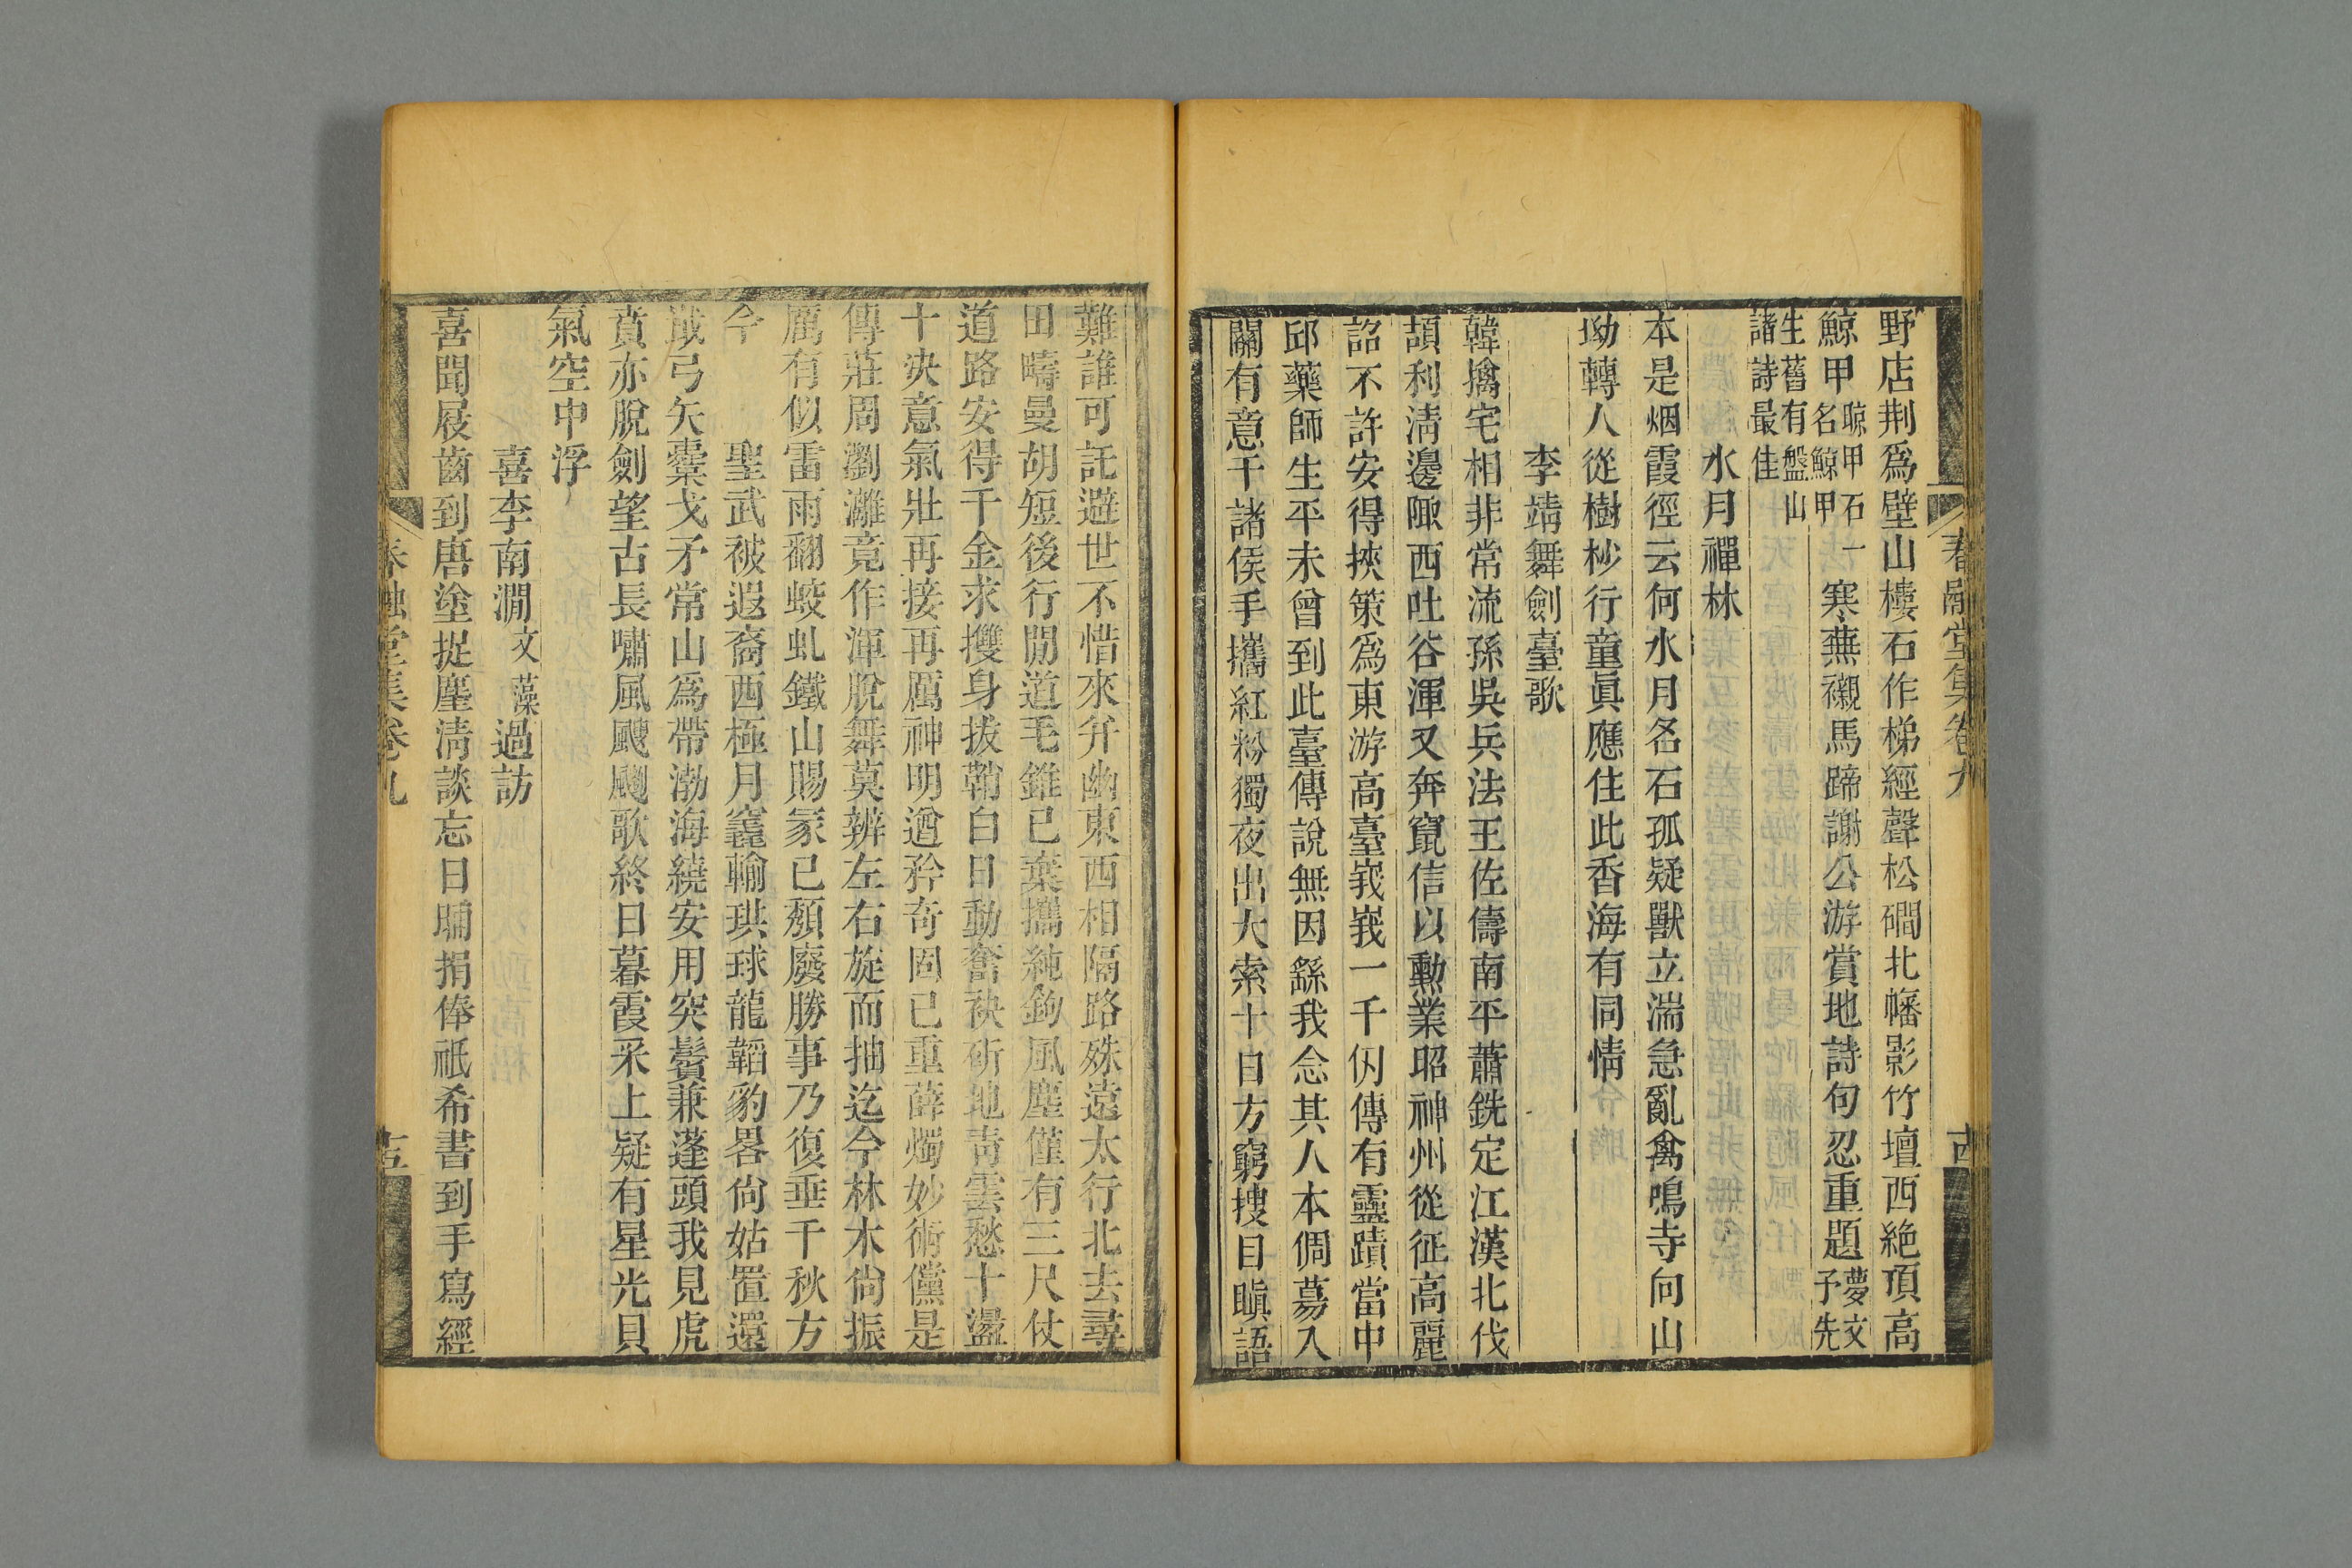 春融堂集卷九
野店荆爲壁山樓石作梯經聲松磵北幡影竹壇西絶頂高
鯨甲晾甲石一名鯨甲寒蕪襯馬蹄謝公游賞地詩句忍重題夢文子先
生舊有盤山諸詩最佳
水月禪林
本是烟霞徑云何水月名石孤疑獸立湍急亂禽鳴寺向山
坳轉人從樹杪行童眞應住此香海有同情
李靖舞劍臺歌
韓擒宅相非常流孫吳兵法王佐儔南平蕭銑定江漢北伐
頡利淸邊陬西吐谷渾又奔竄信以勳業昭神州從征高麗
詔不許安得挾策爲東游高臺峩峩一千仞傳有靈蹟當中
邱藥師生平未曾到此臺傳說無因繇我念其人本倜募入
關有意干諸侯手攜紅粉獨夜出大索十日方窮搜目瞋語
難誰可託避世不惜來幷幽東西相隔路殊遠太行北去尋
田疇曼胡短後行閒道毛錐已葉攜純鉤風塵僅有三尺仗
道路安得千金求擭身拔鞘白日動奮袂斫地靑雲愁十盪
十决意氣壯再接再厲神明遒矜奇固已重薛燭妙術儻是
傳莊周瀏灕竟作渾脫舞莫辨左右旋而抽迄今林木尙振
厲有似雷雨翻蛟虬鐵山賜冡已頽廢勝事乃復垂千秋方
今
聖武被遐裔西極月竁輸珙球龍韜豹畧尙姑置還
戢弓矢櫜戈矛常山爲帶渤海繞安用突鬢兼蓬頭我見虎
賁亦脫劍望古長嘯風颼飀歌終日暮霞采上疑有星光貝
氣空中浮
喜李南澗文藻過訪
喜聞屐齒到唐塗捉麈淸談忘日晡捐俸祇希書到手寫經
春融堂集卷九